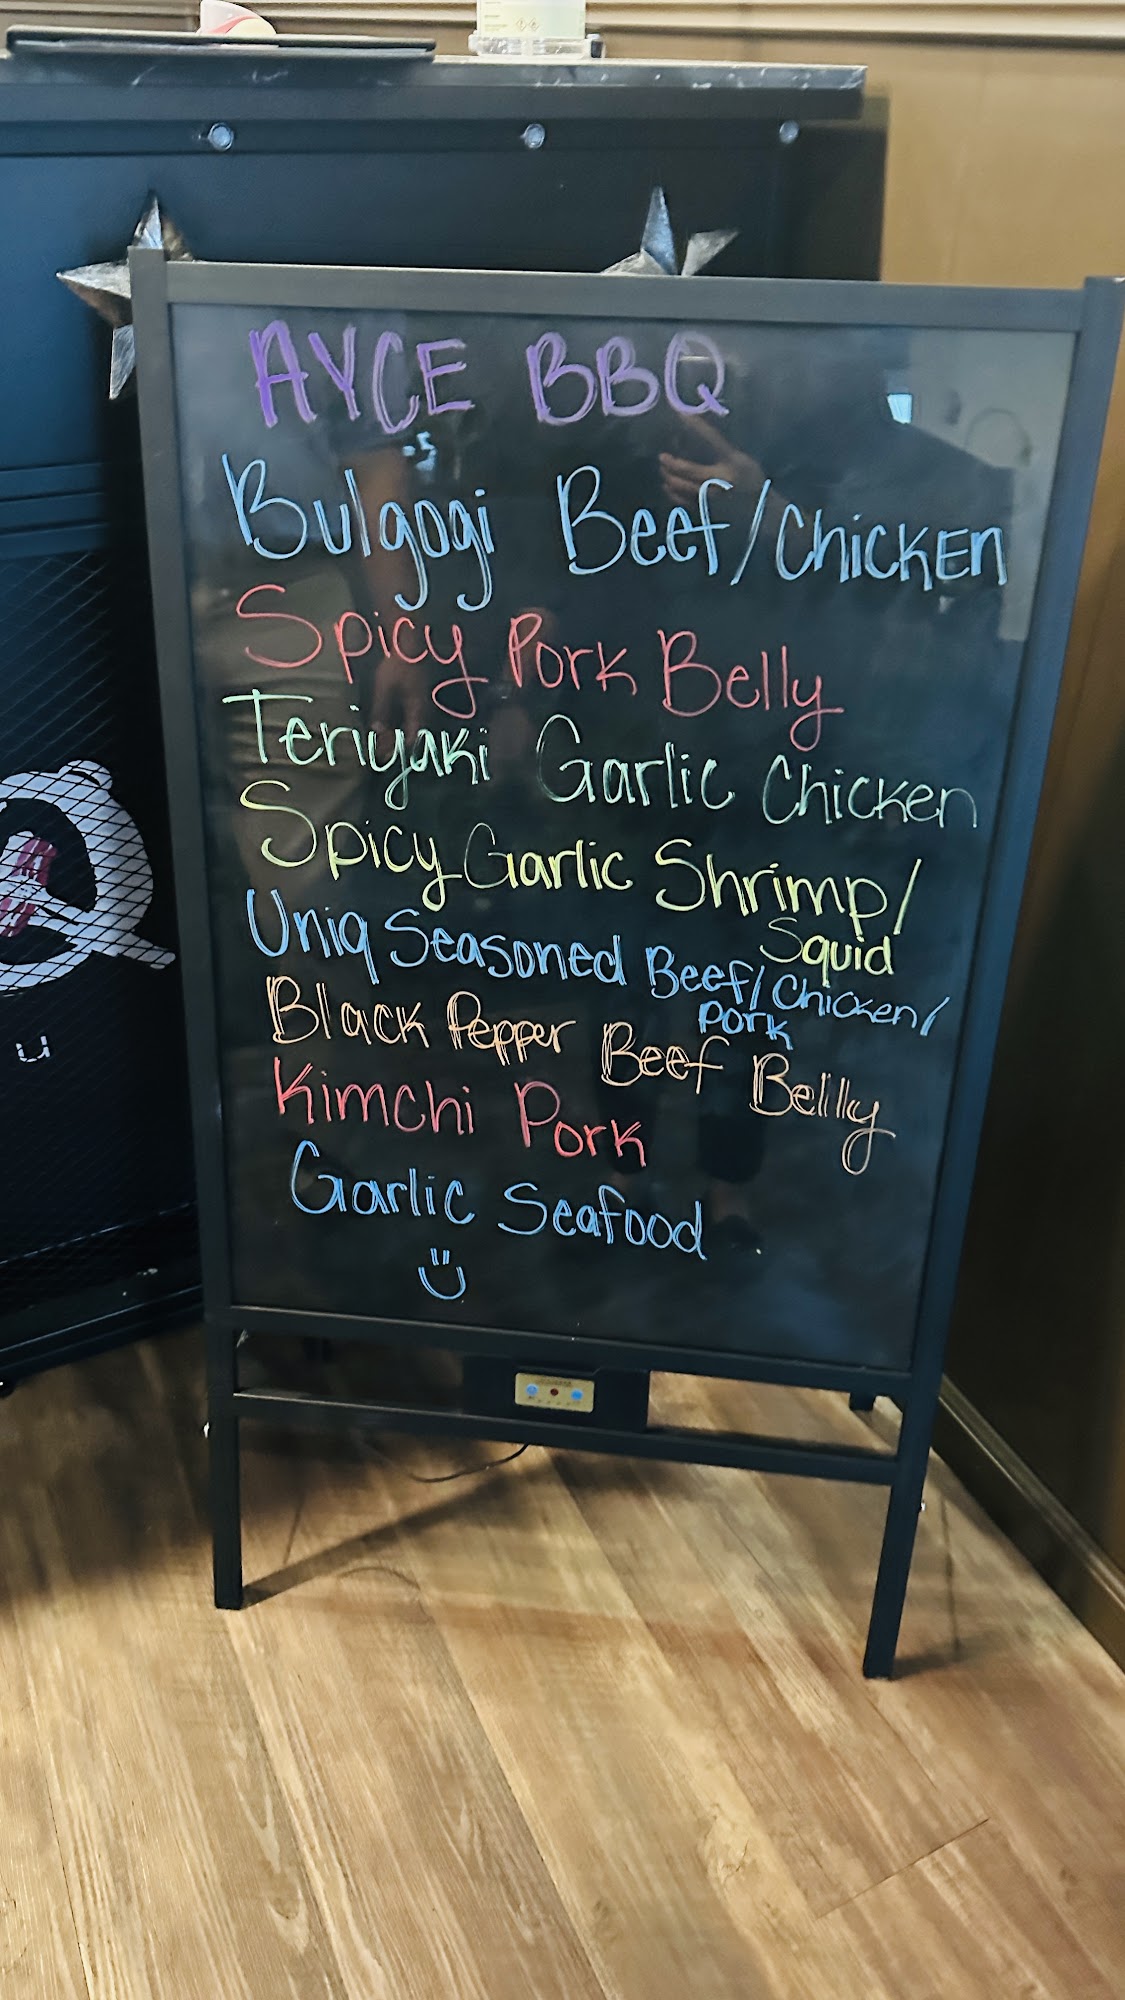 AYCE BBQ
Bulgogi Beef/Chicken
Spicy Pork Belly
Teriyaki Garlic Chicken
Spicy Garlic Shrimp/
Squid
Uniq Seasoned Beef/Chicken/
Pork
Black Pepper Beef Bellly
Kimchi Pork
Garlic Seafood